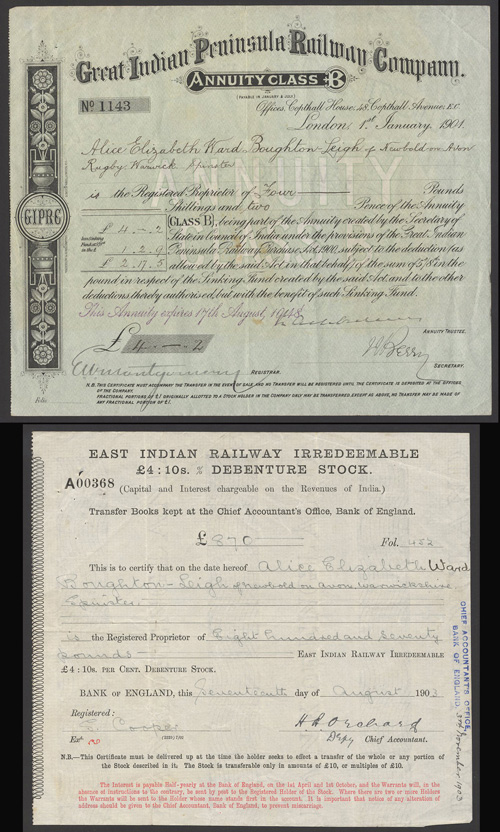 Great Indian Peninsula Railway Company.
ANNUITY CLASS B
(PAYABLE IN JANUARY & JULY)
No 1143
Offices, Copthall House, 48, Copthall Avenue, E.C.
London, 1st January, 1901.
Alice Elizabeth Ward Boughton-Leigh of Newbold on Avon
Rugby, Warwick Spinster
ANNUITY
is the Registered Proprietor of Four Pounds
Shillings and two Pence of the Annuity
£ 4 - 2
(CLASS B), being part of the Annuity created by the Secretary of
State in Council of India under the provisions of the Great Indian
GIPRC
1. 2. 9
Peninsula Railway Purchase Act, 1900, subject to the deduction (as
£ 2. 17. 5
allowed by the said Act in that behalf) of the sum of 5/8 in the
pound in respect of the Sinking Fund created by the said Act, and to the other
deductions thereby authorised, but with the benefit of such Sinking Fund.
This Annuity expires 17th August, 1948.
ANNUITY TRUSTEE.
£ 4 - 2
Berry
SECRETARY.
Montgomery
REGISTRAR.
N.B. THIS CERTIFICATE MUST ACCOMPANY THE TRANSFER IN THE EVENT OF SALE AND NO TRANSFER WILL BE REGISTERED UNTIL THE CERTIFICATE IS DEPOSITED AT THE OFFICES
OF THE COMPANY.
FRACTIONAL PORTIONS OF £1 ORIGINALLY ALLOTTED TO A STOCK HOLDER IN THE COMPANY ONLY MAY BE TRANSFERRED EXCEPT AS ABOVE, NO TRANSFER MAY BE MADE OF
ANY FRACTIONAL PORTION OF £1.
Folio
EAST INDIAN RAILWAY IRREDEEMABLE
£4 : 10s. % DEBENTURE STOCK.
A00368
(Capital and Interest chargeable on the Revenues of India.)
Transfer Books kept at the Chief Accountant's Office, Bank of England.
£ 870
Fol. 452
This is to certify that on the date hereof Alice Elizabeth Ward
Boughton-Leigh of Newbold on Avon, Warwickshire
Spinster
is the Registered Proprietor of Eight hundred and seventy
pounds EAST INDIAN RAILWAY IRREDEEMABLE
£4 : 10s. PER CENT. DEBENTURE STOCK.
BANK OF ENGLAND, this Seventeenth day of August 1903
Registered:
E. Cooper
H A Orchard
Depy Chief Accountant.
CHIEF ACCOUNTANT'S OFFICE,
BANK OF ENGLAND, 3rd November 1903
N.B.—This Certificate must be delivered up at the time the holder seeks to effect a transfer of the whole or any portion of
the Stock described in it. The Stock is transferable only in amounts of £10, or multiples of £10.
The Interest is payable Half-yearly at the Bank of England, on the 1st April and 1st October, and the Warrants will, in the
absence of instructions to the contrary, be sent by post to the Registered Holder of the Stock. Where there are two or more Holders
the Warrants will be sent to the Holder whose name stands first in the account. It is important that notice of any alteration of
address should be given to the Chief Accountant, Bank of England, to prevent miscarriage.